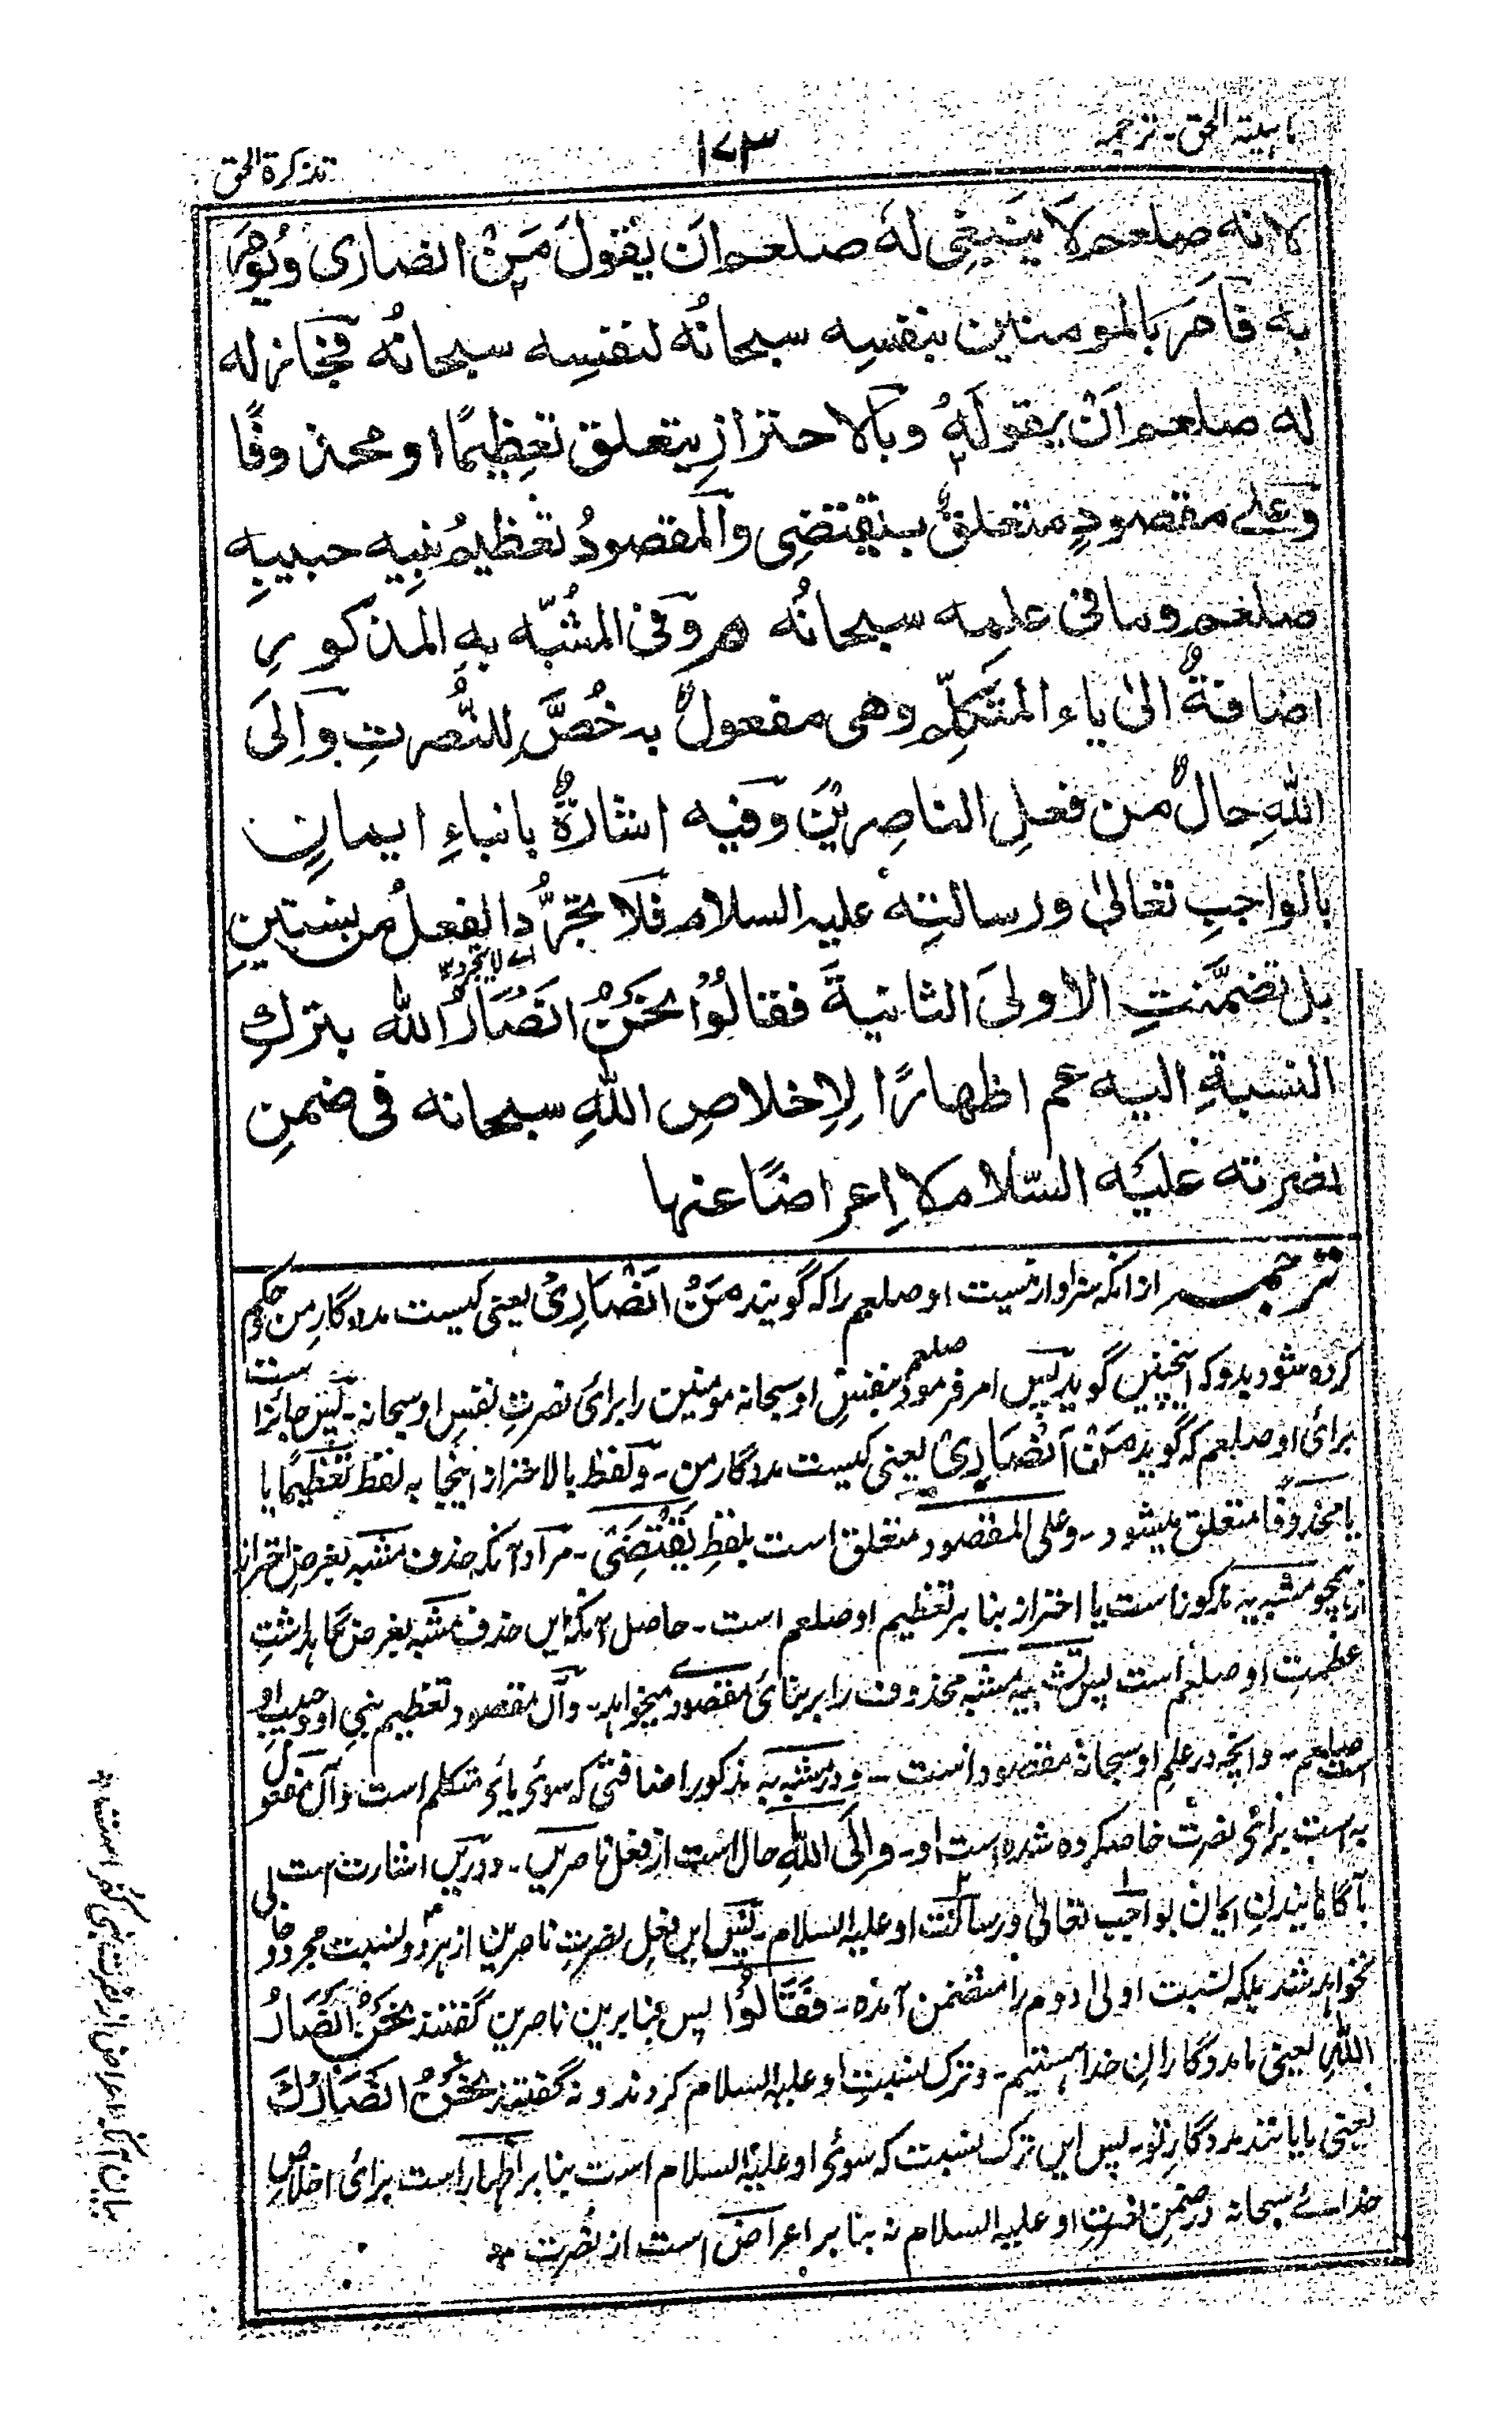 ماهیة الحق - ترجمه ۱۷۳ تذکرة الحق
لانه صلعم لَا يَنبَغِی لهٗ صلعم اَن يقولَ مَنْ انصاری ويُوهَمَ
به فاَمَرَ بالمومنین بنفسِه سبحانُه لنفسِه سبحانُه فجاز له
له صلعم اَنْ يقولَهُ وبالاحترازِ يتعلق تعظِيمًا او محذوفًا
وعلے مقصودٍ متعلقٌ بيقتضِی والمقصودُ تعظيمُ نبِيه حبيبهِ
صلعم وما فی علمِه سبحانُه هم وفی المشُبّه بهِ المذکورِ
اضافةٌ الیٰ ياء المتَکلِّم وهی مفعولٌ به خُصَّ لِلنُّصرتِ وَاِلَی
اللهِ حالٌ من فعلِ الناصِرِيْنَ وفيه اشارةٌ بانباءِ ايمانٍ
بالواجبِ تعالیٰ ورسالتِه علیه السلام فلا يجرَّدُ الفعلُ من نسبتينِ
اے لا يتجرد ۱۲
بل تضمَّنتِ الاولیَ الثانيةَ فقالُوْا نحَنُ اَنْصَارُ الله بتركِ
النسبةِ الیه عم اظهارًا لِاِخلاصِ اللهِ سبحانه فی ضمنِ
نصرته علیَه السّلام لا اِعراضًا عنها
ترجمہ از انکه سزاوار نیست او صلعم را که گویند مَنْ اَنْصَارِیْ یعنی کیست مددگارِ من حکم وهم
کرده شود بدو که اینچنین گوید پس امر فرمود صلعم بنفسِ او سبحانه مومنین را برائ نصرتِ نفسِ او سبحانه - پس جائز است
برائ او صلعم که گوید مَنْ اَنْصَارِیْ یعنی کیست مددگار من - ولفظ بالاحتراز اینجا به لفظ تعظِیمًا یا
یا محذوفًا متعلق میشود - وعلی المقصود متعلق است بلفظِ یَقْتَضِیْ - مراد آنکه حذف مشبه بغرضِ احتراز
از همچو مشبه به مذکور است یا احتراز بنا بر تعظیم او صلعم است - حاصل آنکه این حذف مشبه بغرض نگاهداشتِ
عظمتِ او صلعم است پس تشبیه مشبه محذوف را بر بنائ مقصودے میخواهد - وآن مقصود تعظیم نبی او وحبیب او
صلعم است - وانچه در علمِ او سبحانه مقصود است - ودر مشبه به مذکور اضافتی که سوئ یائ متکلم است وآن مفعول
به است برائ نصرت خاص کرده شده است او - واِلَی اللهِ حال است از فعل ناصرین - ودرین اشارت است
بآگاهانیدنِ ایمان بواجب تعالیٰ ورسالتِ او علیه السلام - پس این فعلِ نصرتِ ناصرین از هر دو نسبت مجرد وخالی
نخواهد شد بلکه نسبت اولی دوم را متضمن آمده - فَقَالُوْا پس بنابرین ناصرین گفتند نَحَنُ اَنْصَارُ
اللهِ یعنی ما مددگارانِ خدا هستیم - وترک نسبتِ او علیه السلام کردند ونه گفتند نَحَنُ اَنْصَارُكَ
یعنی ما یانند مددگارِ تو - پس این ترک نسبت که سوئ او علیه السلام است بنا بر اظهار است برائ اخلاص
خدائے سبحانه در ضمنِ نصرتِ او علیه السلام نه بنا بر اعراض است از نصرت *